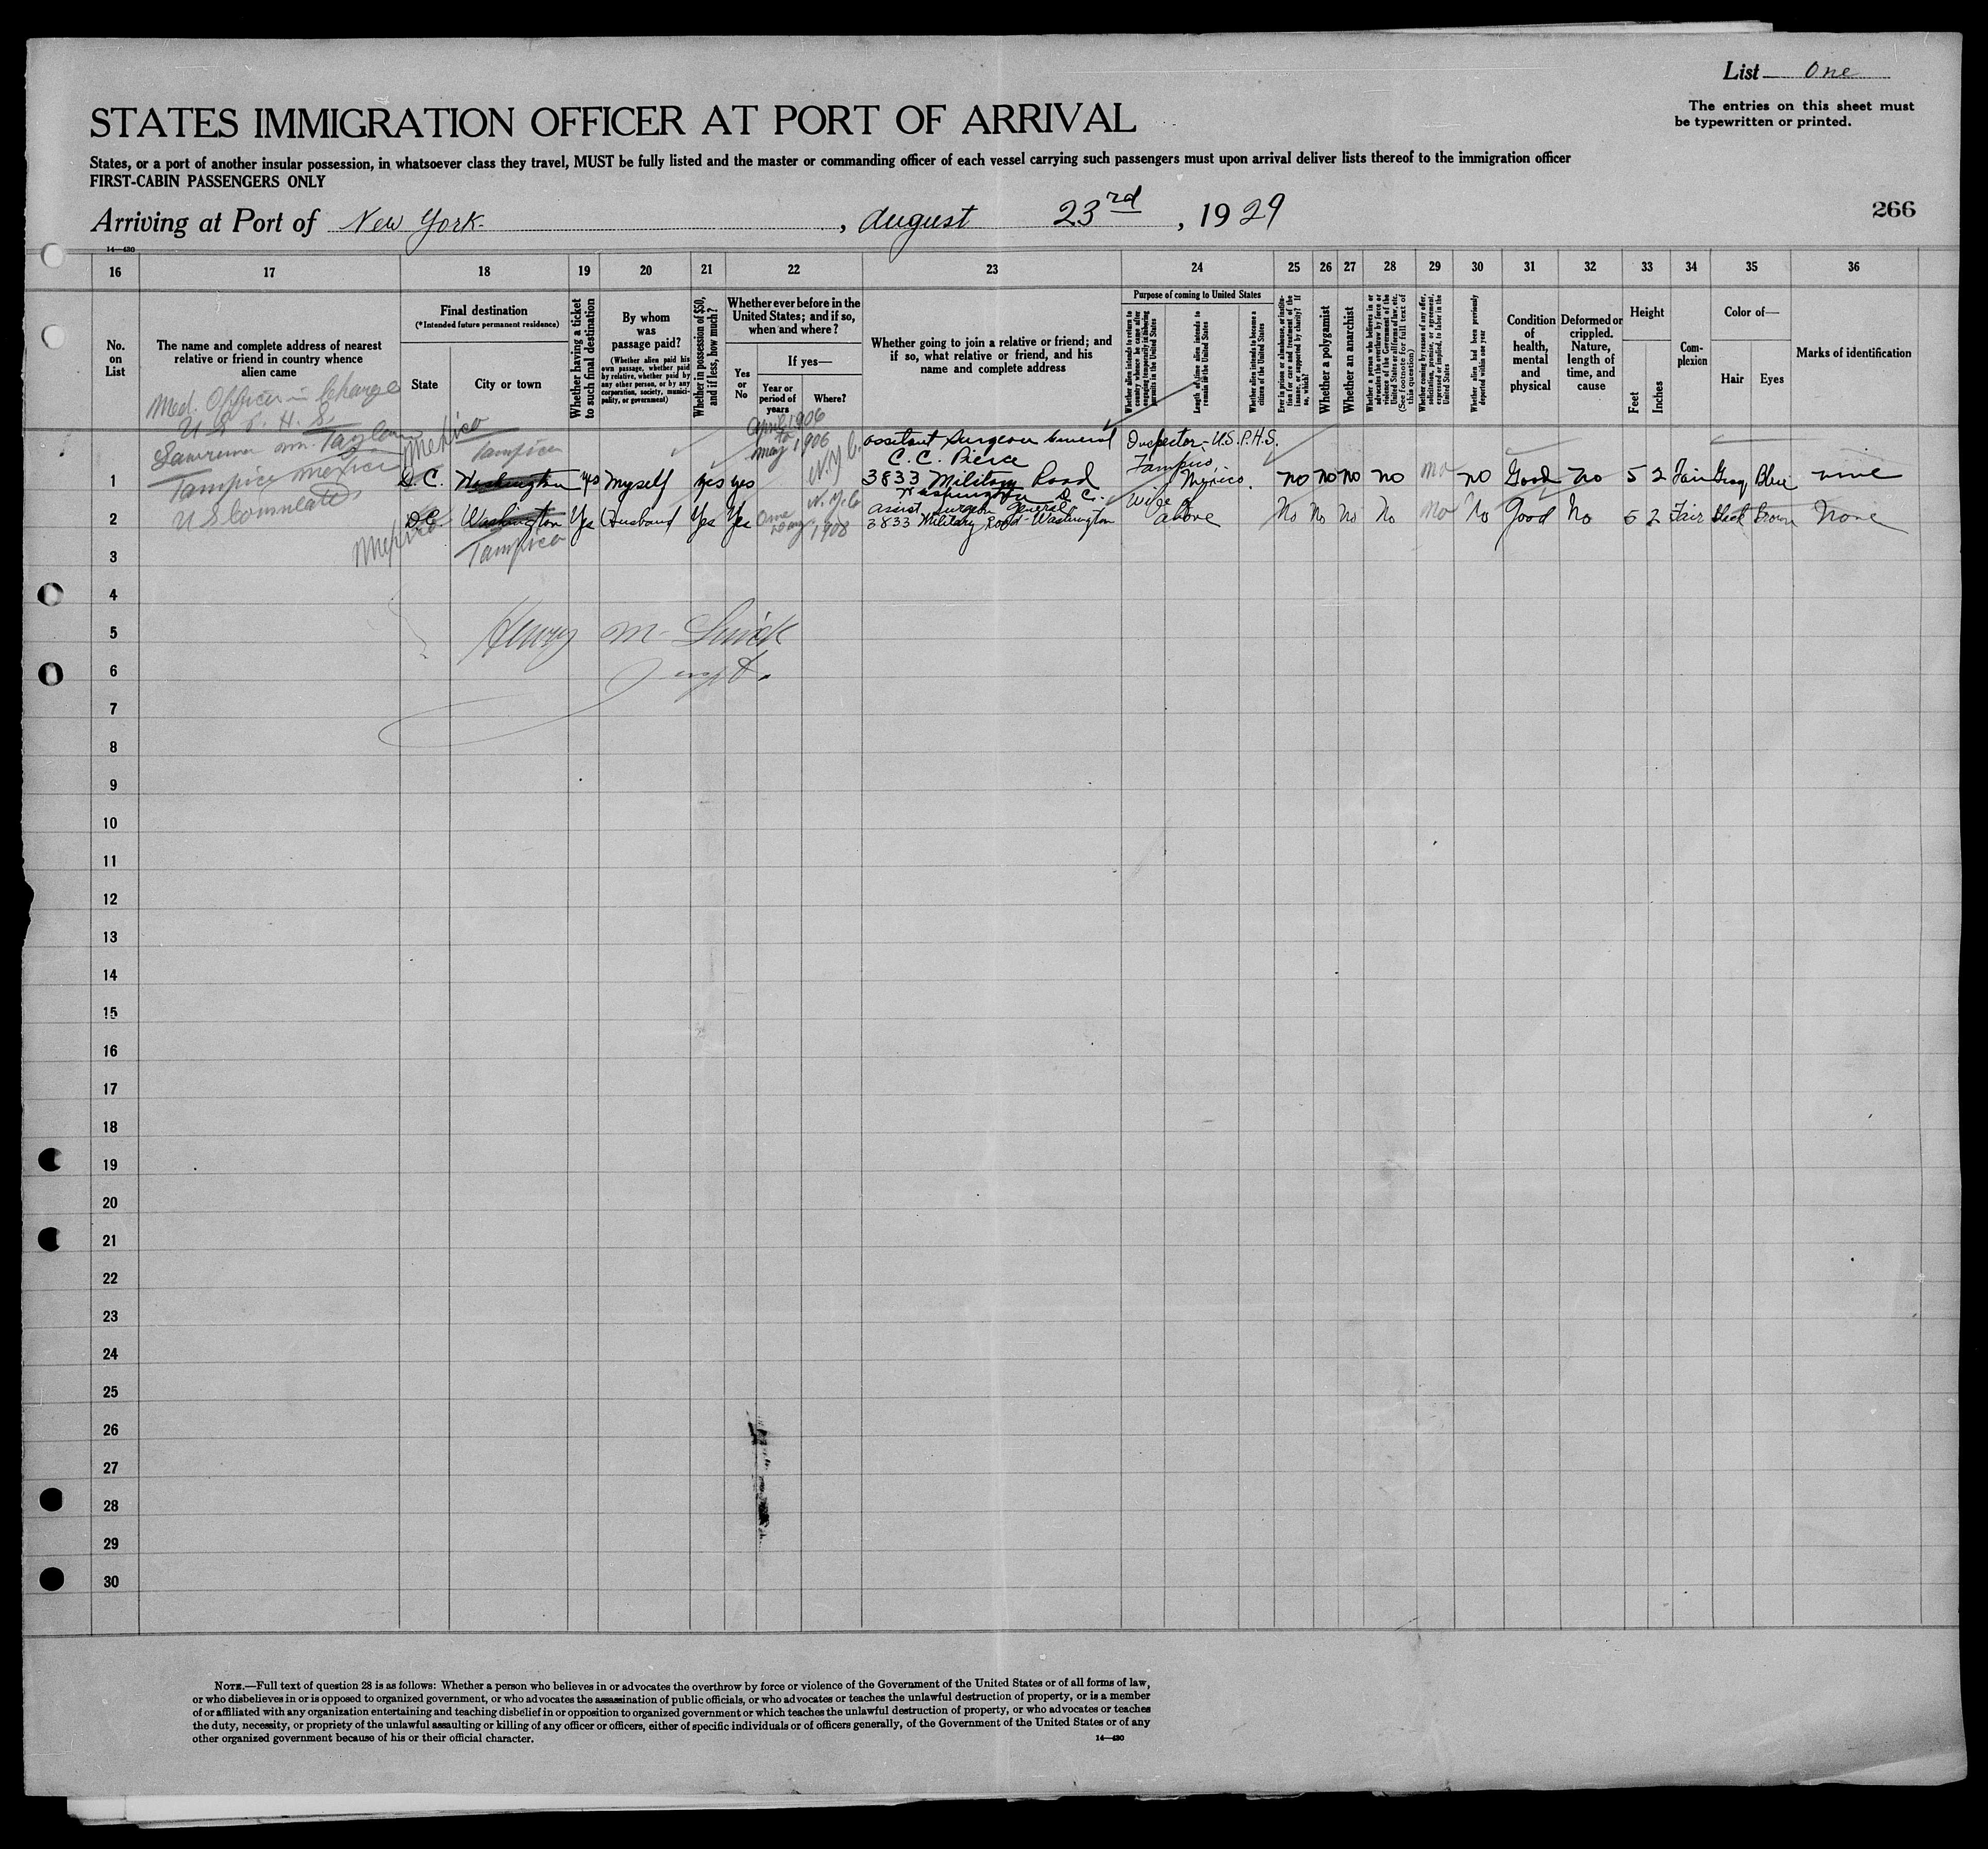 List One
The entries on this sheet must
be typewritten or printed.
STATES IMMIGRATION OFFICER AT PORT OF ARRIVAL
States, or a port of another insular possession, in whatsoever class they travel, MUST be fully listed and the master or commanding officer of each vessel carrying such passengers must upon arrival deliver lists thereof to the immigration officer
FIRST-CABIN PASSENGERS ONLY
Arriving at Port of New York, August 23rd, 1929
266
14—430
16 17 18 19 20 21 22 23 24 25 26 27 28 29 30 31 32 33 34 35 36
No. on List
The name and complete address of nearest relative or friend in country whence alien came
Final destination
(*Intended future permanent residence)
State
City or town
Whether having a ticket to such final destination
By whom was passage paid?
(Whether alien paid his own passage, whether paid by relative, whether paid by any other person, or by any corporation, society, municipality, or government)
Whether in possession of $50, and if less, how much?
Whether ever before in the United States; and if so, when and where?
Yes or No
If yes—
Year or period of years
Where?
Whether going to join a relative or friend; and if so, what relative or friend, and his name and complete address
Purpose of coming to United States
Whether alien intends to return to country whence he came after engaging temporarily in laboring pursuits in the United States
Length of time alien intends to remain in the United States
Whether alien intends to become a citizen of the United States
Ever in prison or almshouse, or institution for care and treatment of the insane, or supported by charity? If so, which?
Whether a polygamist
Whether an anarchist
Whether a person who believes in or advocates the overthrow by force or violence of the Government of the United States or all forms of law, etc. (See footnote for full text of this question)
Whether coming by reason of any offer, solicitation, promise, or agreement, expressed or implied, to labor in the United States
Whether alien had been previously deported within one year
Condition of health, mental and physical
Deformed or crippled. Nature, length of time, and cause
Height
Feet
Inches
Complexion
Color of—
Hair
Eyes
Marks of identification
Med. Officer in Charge
U S P. H. S.
Tampico Mexico
U S Consulate
Mexico Tampico
April 1906
to
May 1906 N.Y.C.
Assistant Surgeon General
C. C. Pierce
3833 Military Road
Washington D.C.
Inspector-U.S.P.H.S.
Tampico,
Mexico.
1 D.C. Washington yes Myself yes yes no no no no no no Good no 5 2 Fair Gray Blue
Assist. Surgeon General
3833 Military Road-Washington
Wife of
above
2 D.C. Washington Yes Husband Yes Yes 1908 N.Y.C. No No No No No No Good No 5 2 Fair Black Brown None
Mexico Tampico
3
4
5
Henry M.
6
7
8
9
10
11
12
13
14
15
16
17
18
19
20
21
22
23
24
25
26
27
28
29
30
NOTE.—Full text of question 28 is as follows: Whether a person who believes in or advocates the overthrow by force or violence of the Government of the United States or of all forms of law,
or who disbelieves in or is opposed to organized government, or who advocates the assassination of public officials, or who advocates or teaches the unlawful destruction of property, or is a member
of or affiliated with any organization entertaining and teaching disbelief in or opposition to organized government or which teaches the unlawful destruction of property, or who advocates or teaches
the duty, necessity, or propriety of the unlawful assaulting or killing of any officer or officers, either of specific individuals or of officers generally, of the Government of the United States or of any
other organized government because of his or their official character.
14—430